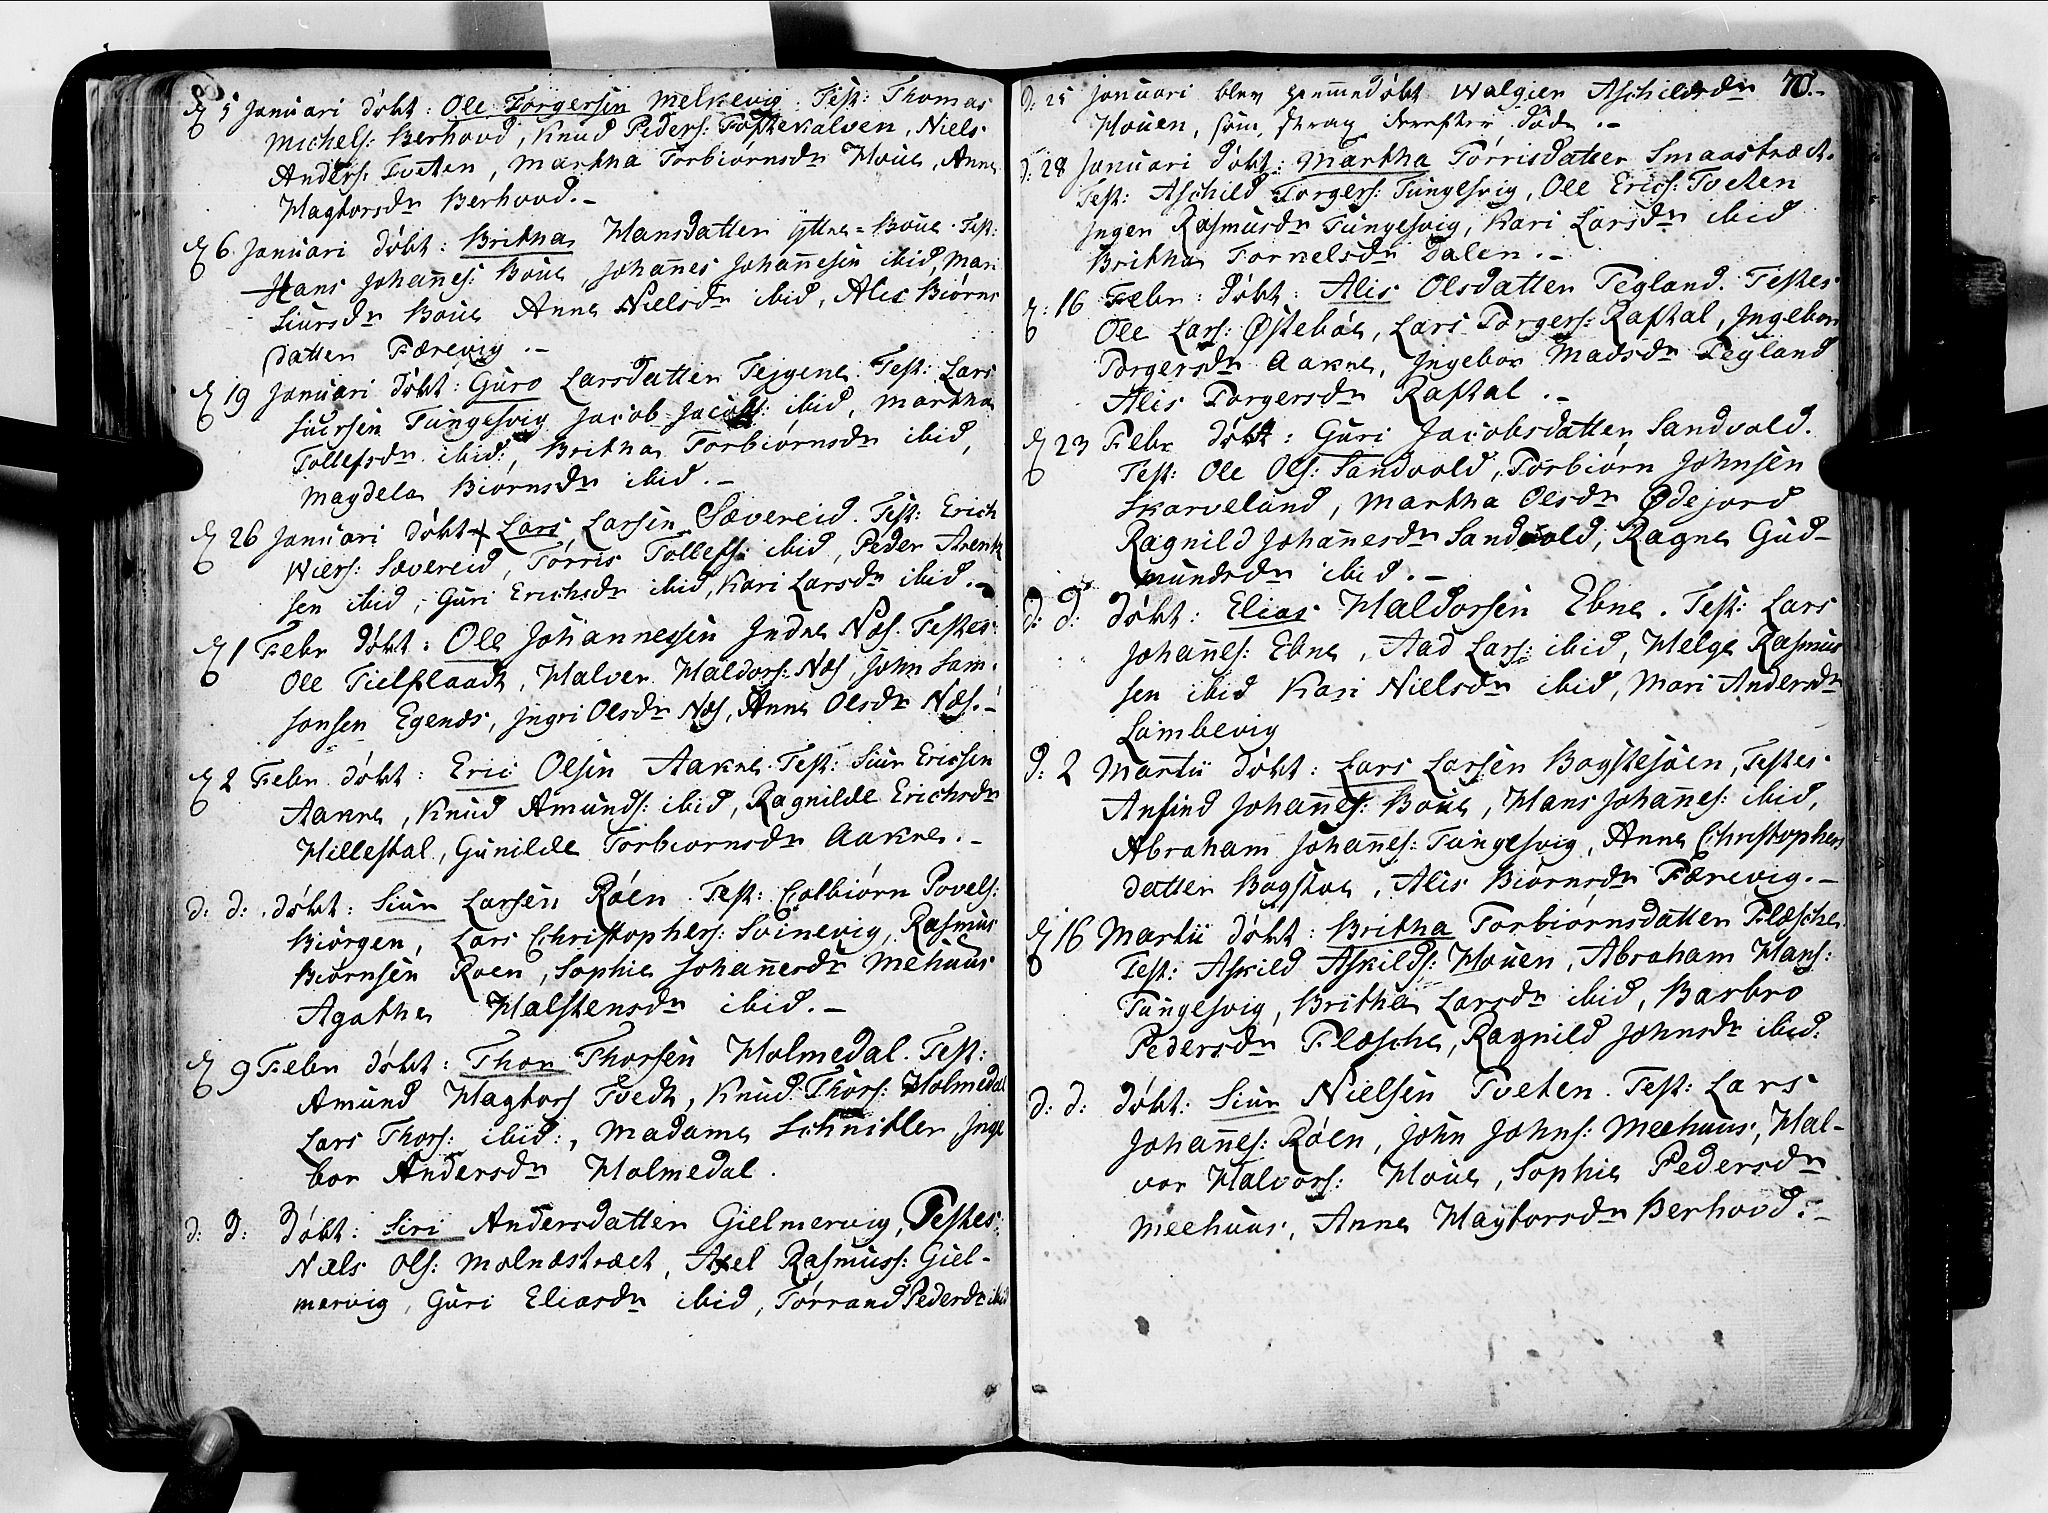 5 Januari døbt: Ole Torgersen Melkevig. Test: Thomas
Michels: Berhovd, Knud Peders: Toftekalven, Niels
Anders: Tveten, Martha Torbiørnsdr Houe, Anna
Hagtorsdr Berhovd.-
6 Januari døbt: Britha Hansdatter yttre-Boue. Test:
Hans Johañes: Boue, Johañes Johañesen ibid, Mari
Siursdr Boue Anna Nielsdr ibid, Alis Biørns
datter Færevig.-
19 Januari døbt: Guro Larsdatter Teigene. Test: Lars
Siursen Tungesvig Jacob Jacobs: ibid, Martha
Tollefsdr ibid:, Britha Torbiørnsdr ibid,
Magdela Biørnsdr ibid.-
26 Januari døbt: Lars Larsen Sævereid. Test: Erich
Wiers: Sævereid, Tørris Tollefs: ibid, Peder Arent
sen ibid, Guri Erichsdr ibid, Kari Larsdr ibid.-
1 Febr døbt: Ole Johannessen Indre Næs. Testes:
Ole Tielflaadt, Halver Haldors: Næs, John Sam-
sonsen Egenæs, Ingri Olsdr Næs, Anna Olsdr Næs.-
2 Febr døbt: Eric Olsen Aakre. Test: Siur Ericsen
Aakre, Knud Amunds: ibid, Ragnilde Erichsdr
Hillestal, Gunilde Torbiornsdr Aakre.-
d: d: døbt: Siur Larsen Røen. Test: Colbiørn Povels:
Biørgen, Lars Christophers: Svinevig, Rasmus
Biørnsen Roen, Sophie Johañesdr Mehuus
Agatha Halstensdr ibid.-
9 Febr døbt: Thor Thorsen Holmedal. Test:
Amund Hagtors Tvedt, Knud Thors: Holmedal
Lars Thors: ibid:, Madame Schnitler Inge
bor Andersdr Holmedal.
d: d: døbt: Siri Andersdatter Gielmervig, Testes:
Næls Ols: Molnæstræet, Axel Rasmuss: Giel-
mervig, Guri Eliasdr ibid, Tørrand Pedersdr ibid
70.-
d: 25 Januari blev hiemmedøbt Walgier Aschildsdr
Houen, som strax derefter døde.-
d: 28 Januari døbt: Martha Tørrisdatter Smaastræet.
Test: Aschild Torgers: Tungesvig, Ole Erics: Tveten
Inger Rasmusdr Tungesvig, Kari Larsdr ibid
Britha Tornelsdr Dalen.-
16 Febr: døbt: Alis Olsdatter Tegland. Testes
Ole Lars: Østebøe, Lars Torgers: Raftal, Ingebor
Torgersdr Aakre, Ingebor Madsdr Tegland
Alis Torgersdr Raftal.-
23 Febr døbt: Guri Jacobsdatter Sandvold.
Test: Ole Ols: Sandvold, Torbiørn Johnsen
Skarveland, Martha Olsdr Ødejord
Ragnild Johañesdr Sandvold, Ragne Gud-
mundsdr ibid.-
d: d: døbt: Elias Haldorsen Ebne. Test: Lars
Johañes: Ebne, Aad Lars: ibid, Helge Rasmus
sen ibid Kari Nielsdr ibid, Mari Andersdr
Lambevig
d: 2 Martii døbt: Lars Larsen Bogstesøen, Testes.
Anfind Johañes: Boue, Hans Johañes: ibid,
Abraham Johañes: Tungesvig, Anne Christophers
datter Bogstøe, Alis Biørnsdr Færevig.-
16 Martii døbt: Britha Torbiørnsdatter Flæsche
Test: Askild Askilds: Houen, Abraham Hans:
Tungesvig, Britha Larsdr ibid, Barbro
Pedersdr Flæsche, Ragnild Johnsdr ibid.
d: d: døbt: Siur Nielsen Tveten. Test: Lars
Johañes: Røen, John Johns: Meehuus, Hal-
vor Halvors: Houe, Sophie Pedersdr
Meehuus, Anna Hagtorsdr Berhovd.-